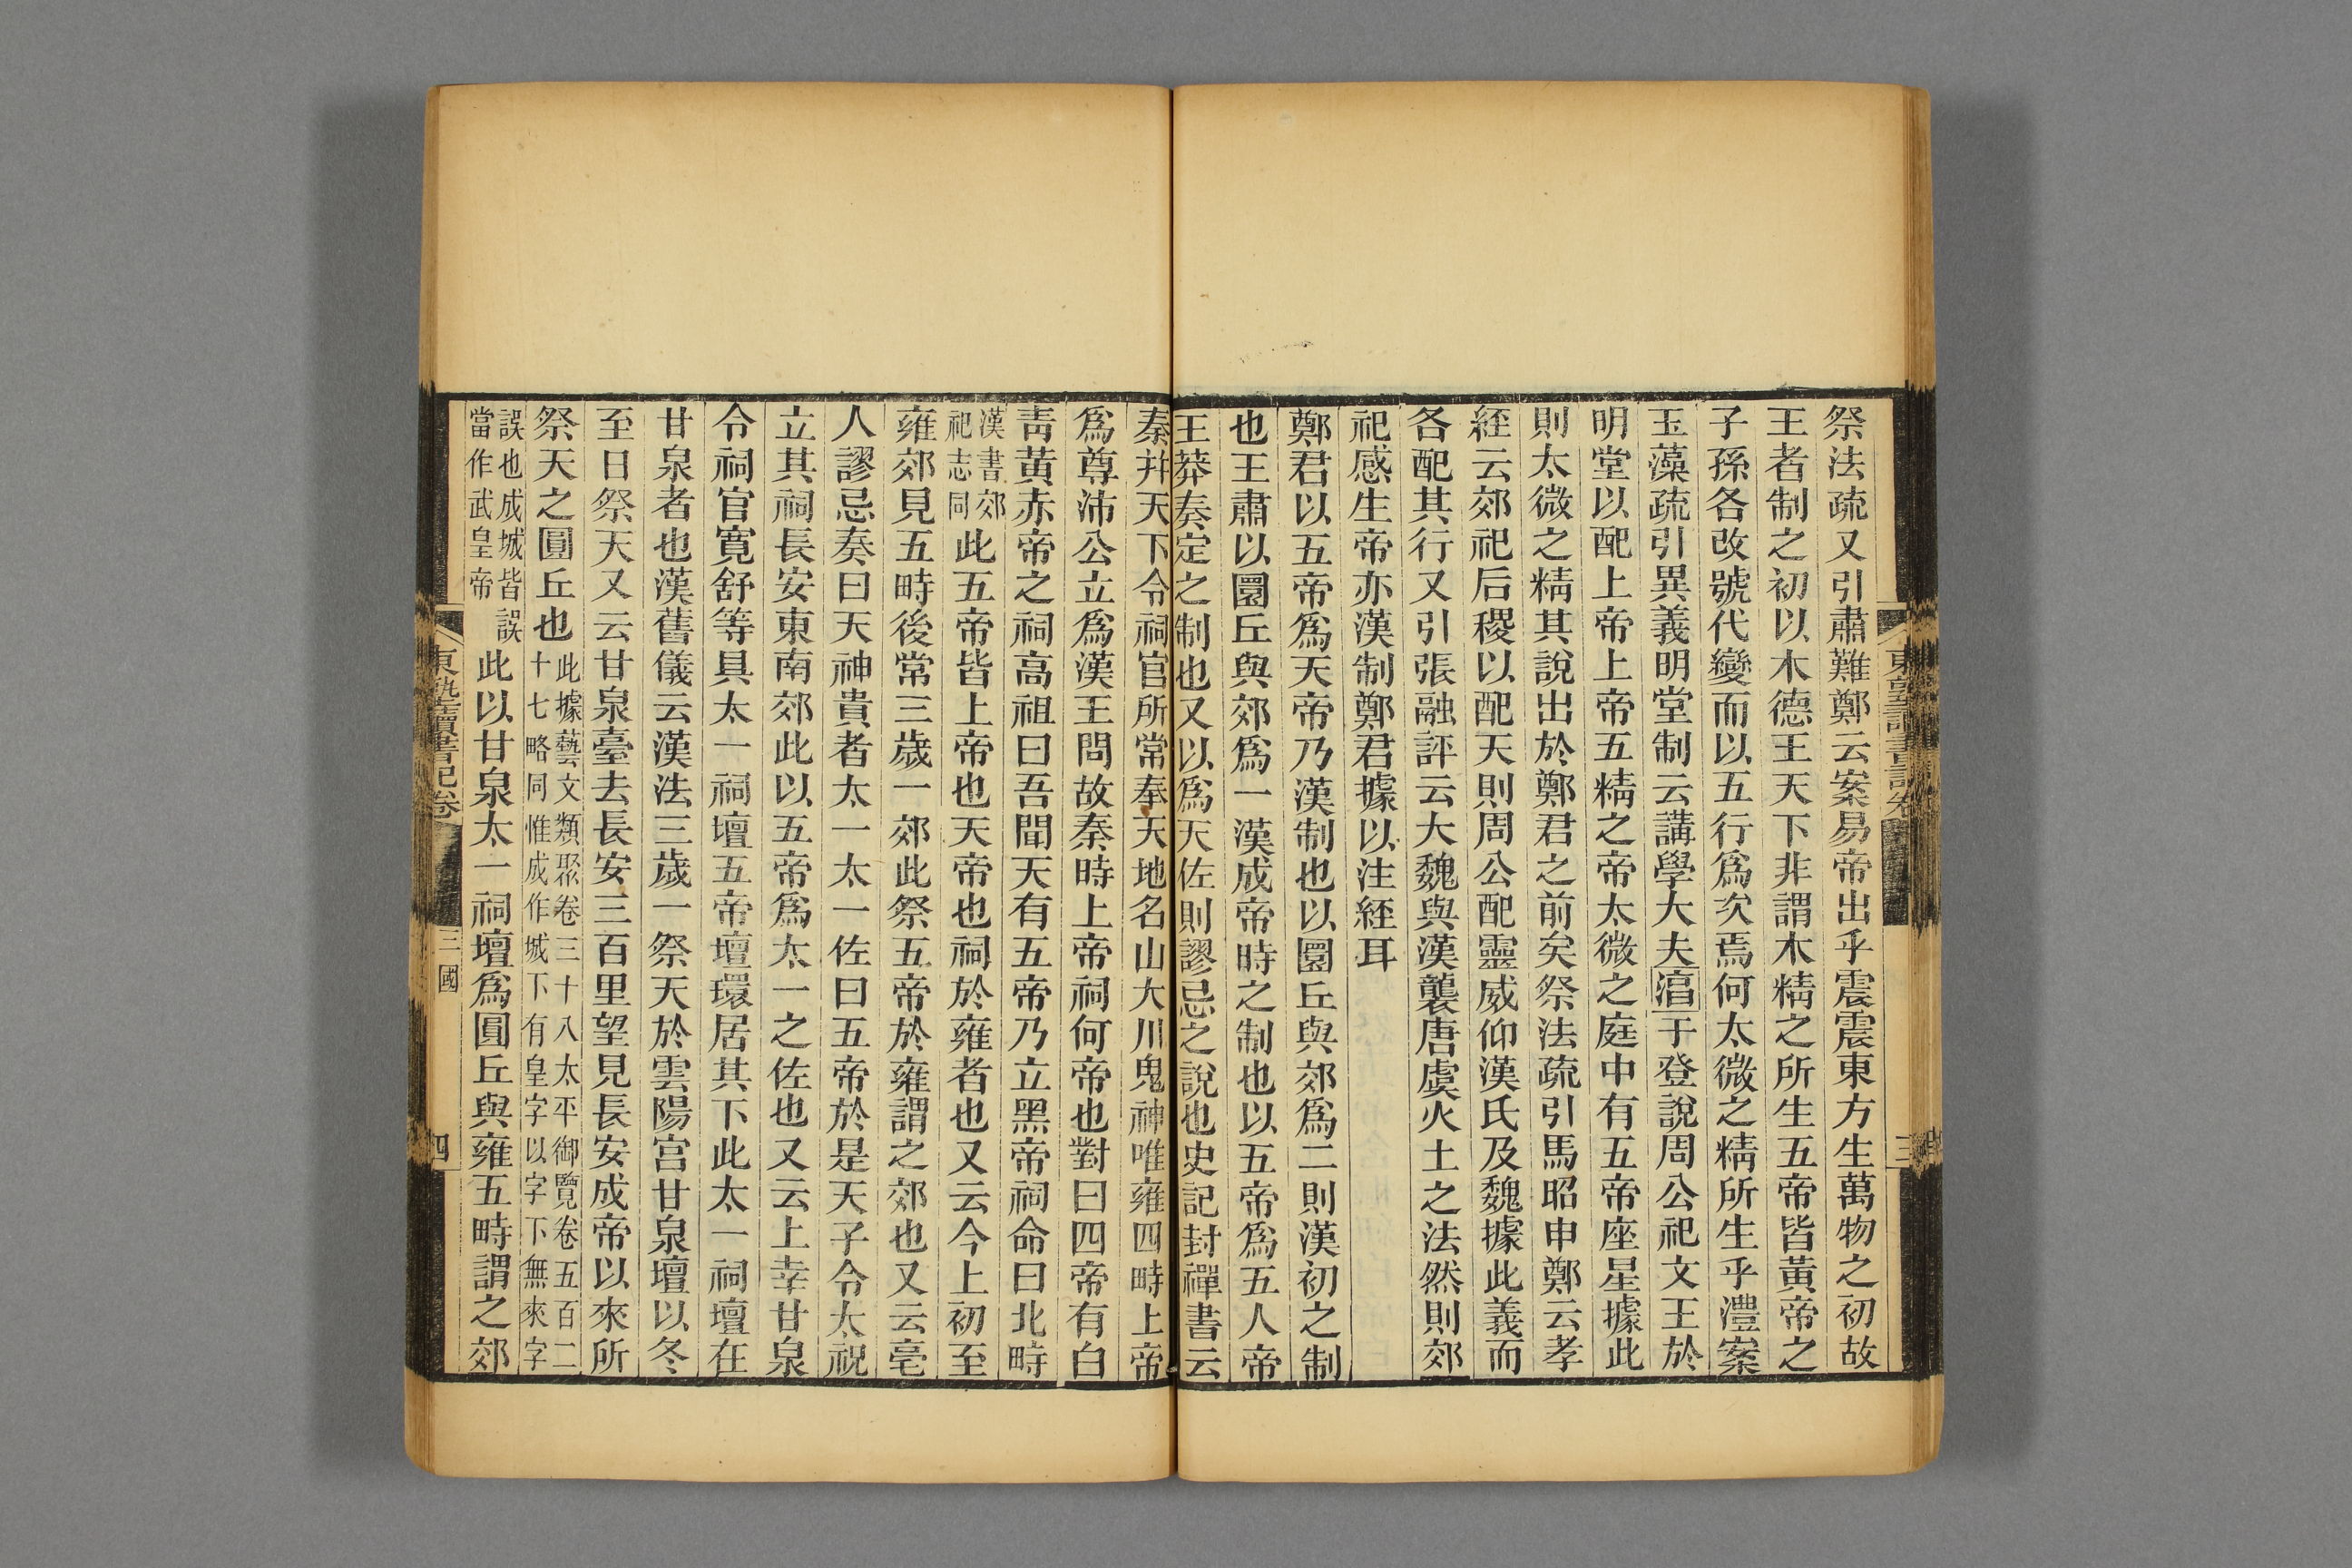 祭法疏又引肅難鄭云案易帝出乎震震東方生萬物之初故
王者制之初以木德王天下非謂木精之所生五帝皆黃帝之
子孫各改號代變而以五行爲次焉何太微之精所生乎澧案
玉藻疏引異義明堂制云講學大夫淳于登說周公祀文王於
明堂以配上帝上帝五精之帝太微之庭中有五帝座星據此
則太微之精其說出於鄭君之前矣祭法疏引馬昭申鄭云孝
經云郊祀后稷以配天則周公配靈威仰漢氏及魏據此義而
各配其行又引張融評云大魏與漢襲唐虞火土之法然則郊
祀感生帝亦漢制鄭君據以注經耳
鄭君以五帝爲天帝乃漢制也以圜丘與郊爲二則漢初之制
也王肅以圜丘與郊爲一漢成帝時之制也以五帝爲五人帝
王莽奏定之制也又以爲天佐則謬忌之說也史記封禪書云
秦幷天下令祠官所常奉天地名山大川鬼神唯雍四畤上帝
爲尊沛公立爲漢王問故秦時上帝祠何帝也對曰四帝有白
靑黃赤帝之祠高祖曰吾聞天有五帝乃立黑帝祠命曰北畤
漢書郊
祀志同
此五帝皆上帝也天帝也祠於雍者也又云今上初至
雍郊見五畤後常三歲一郊此祭五帝於雍謂之郊也又云亳
人謬忌奏曰天神貴者太一太一佐曰五帝於是天子令太祝
立其祠長安東南郊此以五帝爲太一之佐也又云上幸甘泉
令祠官寬舒等具太一祠壇五帝壇環居其下此太一祠壇在
甘泉者也漢舊儀云漢法三歲一祭天於雲陽宮甘泉壇以冬
至日祭天又云甘泉臺去長安三百里望見長安成帝以來所
祭天之圓丘也
此據藝文類聚卷三十八太平御覽卷五百二
十七略同惟成作城下有皇字以字下無來字
誤也成城皆誤
當作武皇帝
此以甘泉太一祠壇爲圓丘與雍五畤謂之郊
東塾讀書記卷
三
四